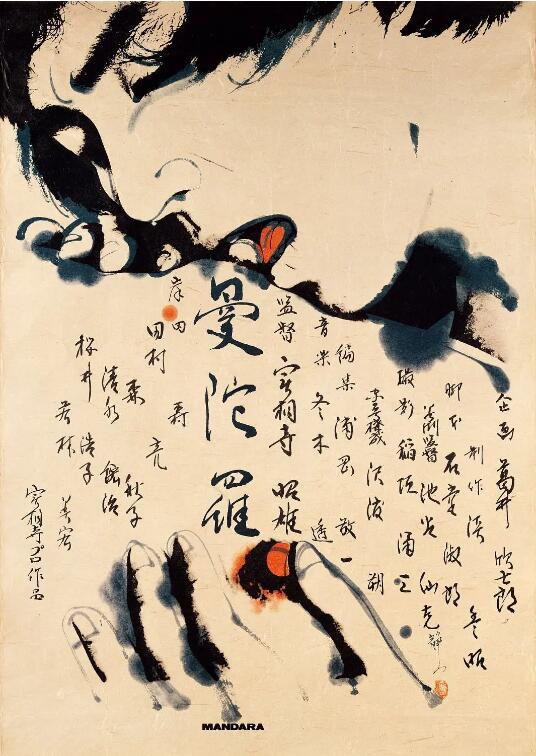 企画 葛井欣士郎
制作 淡 豊昭
脚本 石堂淑朗
池谷仙克
撮影 稲垣涌三
編集 浦岡敬一
音楽 冬木透
監督 実相寺昭雄
曼陀羅
岸田
田村 亮
森 秋子
清水 紘治
桜井 浩子
若林 美宏
実相寺プロ作品
MANDARA